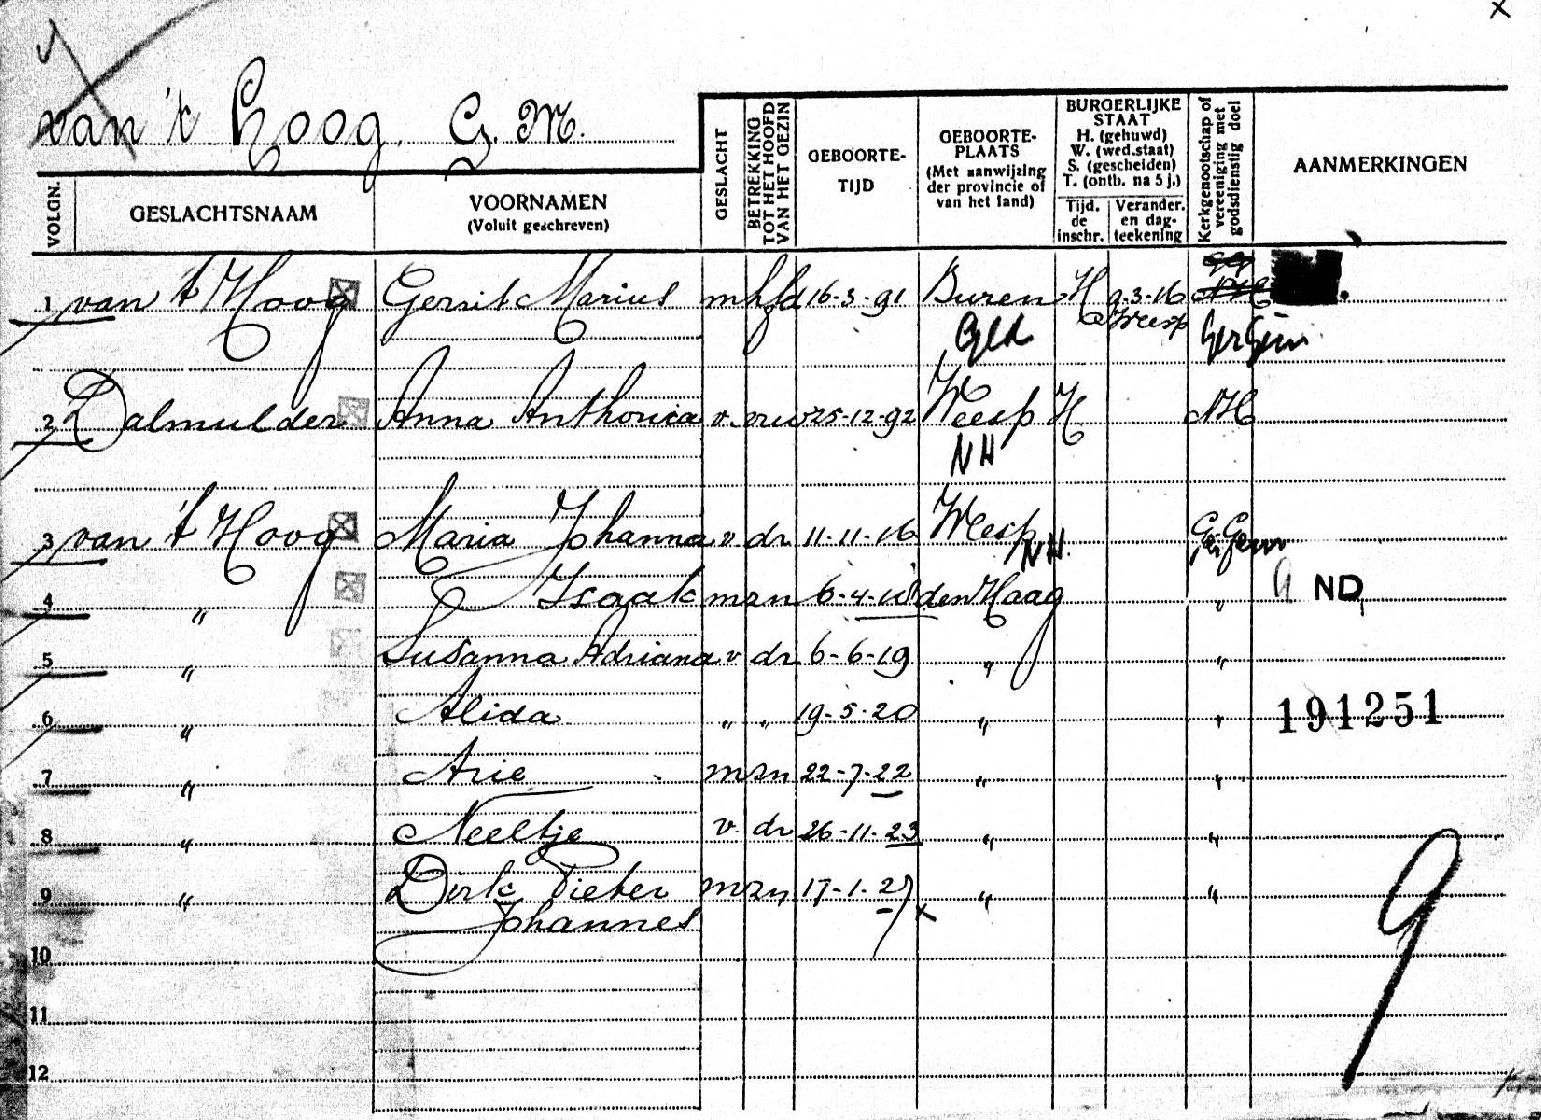 x
van 't Hoog. G. M.
VOLGN.
GESLACHTSNAAM
VOORNAMEN
(Voluit geschreven)
GESLACHT
BETREKKING
TOT HET HOOFD
VAN HET GEZIN
GEBOORTE-
TIJD
GEBOORTE-
PLAATS
(Met aanwijzing
der provincie of
van het land)
BURGERLIJKE
STAAT
H. (gehuwd)
W. (wed.staat)
S. (gescheiden)
T. (ontb. na 5 j.)
Tijd.
de
inschr.
Verander.
en dag-
teekening
Kerkgenootschap of
vereeniging met
godsdienstig doel
AANMERKINGEN
1 van 't Hoog Gerrit Marius m hfd 16-3-91 Buren H 9-3-16 NH
Gld Weesp Ger Gem.
2 Dalmulder Anna Anthonia v. vrw 25-12-92 Weesp H NH
NH
3 van 't Hoog Maria Johanna v. dr. 11-11-16 Weesp Ger Gem
NH.
4 " Isaak m zn 6-4-18 den Haag " ND
5 " Susanna Adriana v dr 6-6-19 " "
6 " Alida " " 19-5-20 " " 191251
7 " Arie m zn 22-7-22 " "
8 " Neeltje v dr 26-11-23 " "
9 " Derk Pieter m zn 17-1-27 x " " 9
Johannes
10
11
12